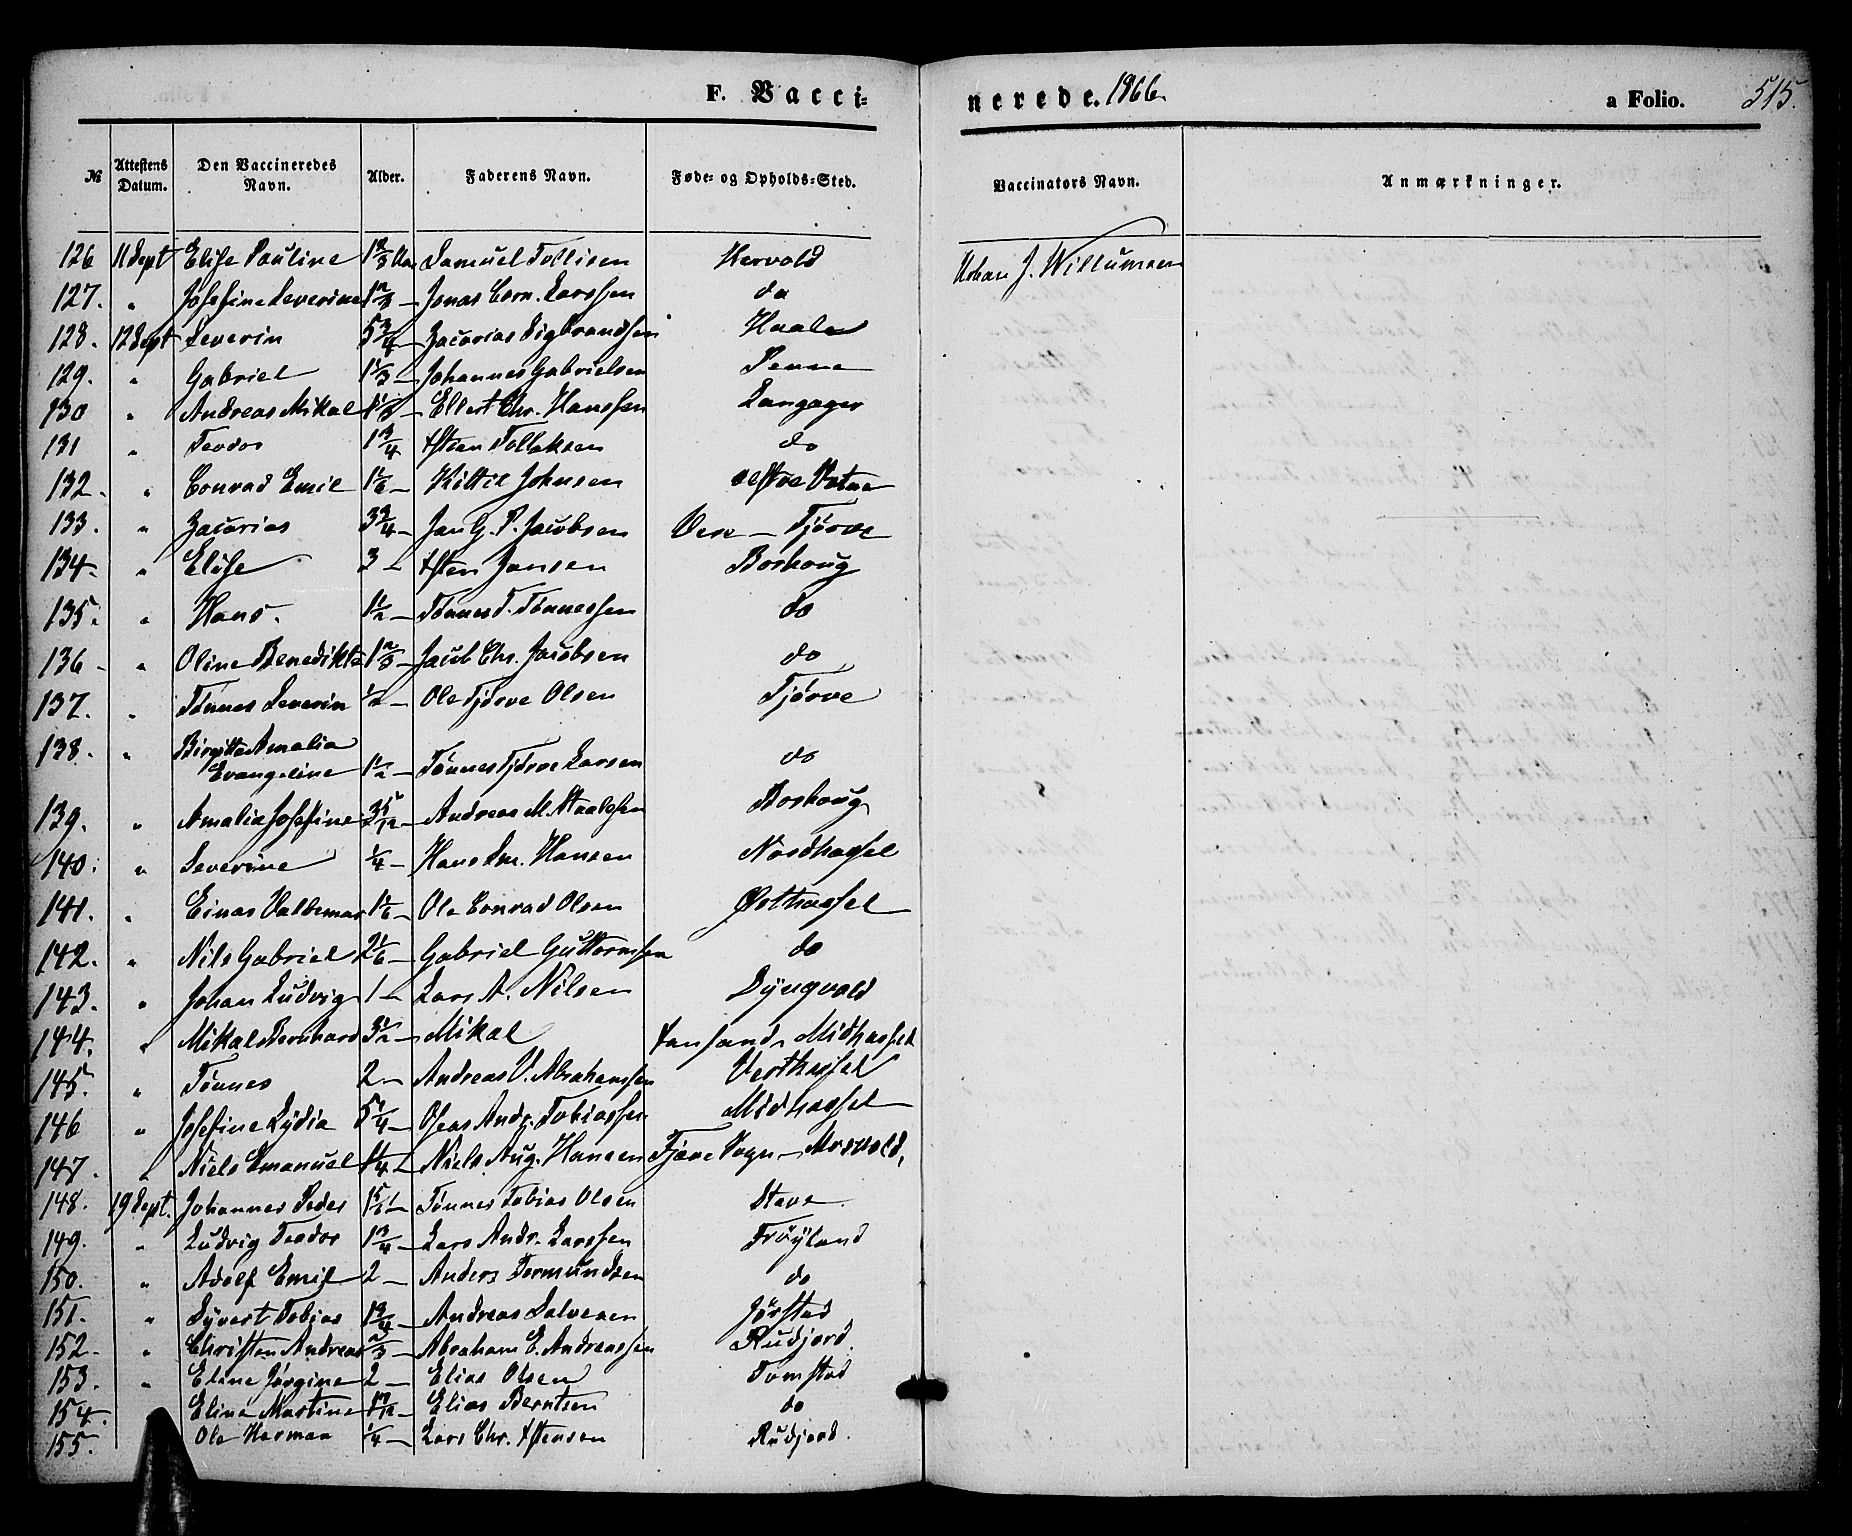 F. Vacci=
nerede. 1866.
a Folio. 515.
№ Attestens Datum. Den Vaccineredes Navn. Alder. Faderens Navn. Føde- og Opholds-Sted. Vaccinators Navn. Anmærkninger.
126 11 Sept Elise Pauline 1 2/3 Samuel Tollisen Hervold J. Willumsen
127. " Josefine Severine 1 2/3 — Jonas Corn. Larssen do
128. 12 Sept Severin 5 3/4 — Zacarias Sigbrandsen
129. " Gabriel 1 1/3 — Johannes Gabrielsen Penne
130 " Andreas Mikal — Ellert Chr. Hanssen Langager
131 " Teodor 1 3/4 Tollaksen do
132. " Conrad Emil 1 1/6 — Kittil Johnsen Vatne
133. " Zacarias 3 3/4 — Jan G. P. Jacobsen Vere — Tjørve
134. " Elise 3 — Jansen Borhoug
135. " Hans. 1 1/2 — Tønnes T. Tønnessen do
136 - " Oline Benedikte 1 2/3 — Jacob Chr. Jacobsen do
137. " Tønnes Severin 1/2 — Ole Tjørve Olsen Tjørve
138. " Birgitte Amalia
Evangeline 1 1/2 — Tønnes Tjørve Larsen do
139. " Amalia Josefine 3 5/12 — Andreas M. Staalesen Borhoug
140. " Severine 1/4 — Hans Hansen Nordhassel
141. " Einar Valdemar 1 1/6 — Ole Conrad Olsen Østhassel
142. " Nils Gabriel 2 1/6 — Gabriel Guttormsen do
143. " Johan Ludvig 1 — Lars A. Nilsen Dyngvold
144. " Mikal Bernhard 3 1/2 — Mikal Midhassel
145. " Tønnes 2 — Andreas V. Abrahamsen Vesthassel
146 " Josefine Lydia 5 1/4 — Oseas Andr. Tobiassen Midhassel
147. " Niels Emanuel — Niels Aug. Hansen Sogn —
148. 19 Sept. Johannes Peder — Tønnes Tobias Olsen Stave
149. " Ludvig Teodor 1 3/4 — Lars Andr. Larssen Frøyland
150. " Adolf Emil 2 — Anders Tormundsen do
151. " Syvert Tobias 1 3/4 — Andreas Salvesen Jørstad
152. " Christen Andreas 2/3 — Abraham E. Andreassen Rudjord.
153. " Eline Jørgine 2 — Elias Olsen Tomstad
154. " Eline Martine — Elias Berntsen do
155. Ole Herman 1/4 — Lars Chr. Rudjord.